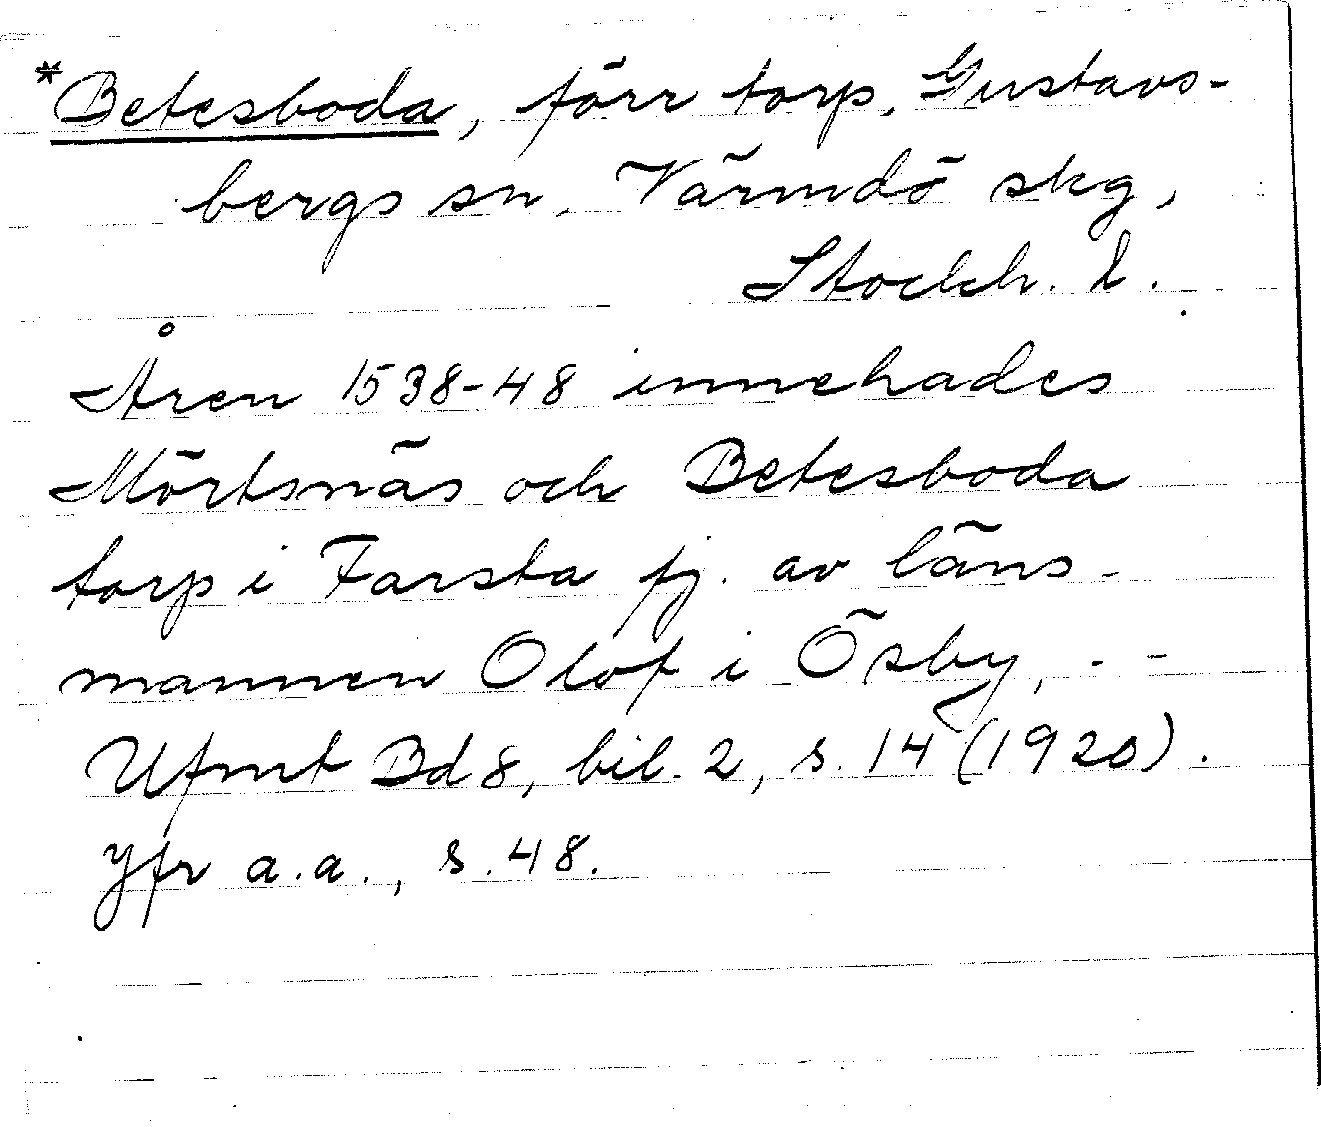 *Betesboda, förr torp, Gustavs-
bergs sn, Värmdö skg,
Stockh. l.
Åren 1538-48 innehades
Mörtsnäs och Betesboda
torp i Farsta fj. av läns-
mannen Olof i Ösby, - -
Ufmt Bd 8, bil. 2, s. 14 (1920).
Jfr a.a., s. 48.